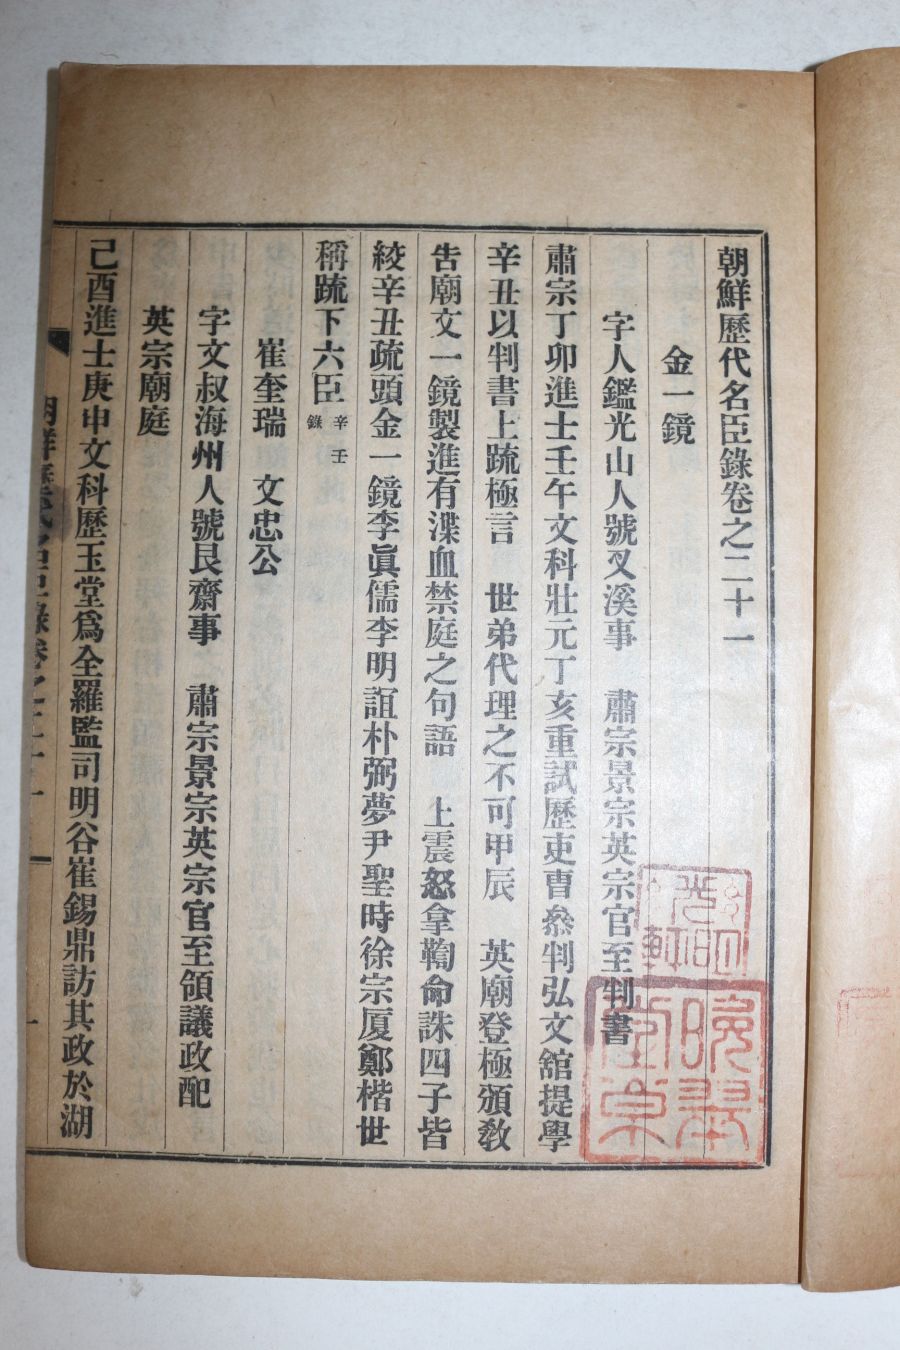 朝鮮歷代名臣錄卷之二十一
金一鏡
字人鑑光山人號丫溪事　肅宗景宗英宗官至判書
肅宗丁卯進士壬午文科壯元丁亥重試歷吏曹叅判弘文舘提學
辛丑以判書上疏極言　世弟代理之不可甲辰　英廟登極頒敎
告廟文一鏡製進有渫血禁庭之句語　上震怒拿鞫命誅四子皆
絞辛丑疏頭金一鏡李眞儒李明誼朴弼夢尹聖時徐宗厦鄭楷世
稱疏下六臣 辛壬錄
崔奎瑞　文忠公
字文叔海州人號艮齋事　肅宗景宗英宗官至領議政配
英宗廟庭
己酉進士庚申文科歷玉堂爲全羅監司明谷崔錫鼎訪其政於湖